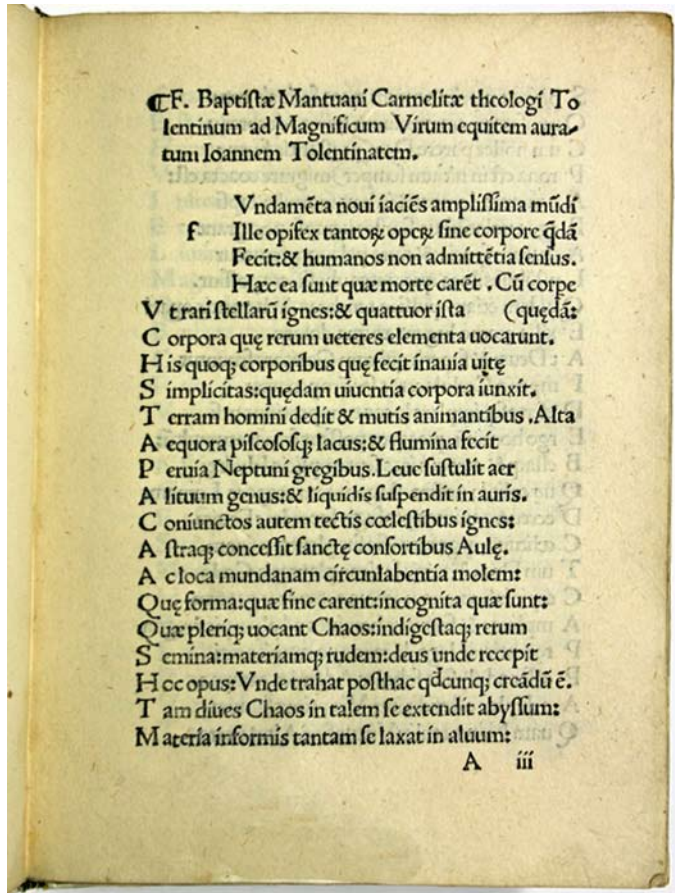 ¶F. Baptiſtæ Mantuani Carmelitæ theologi To
lentinum ad Magnificum Virum equitem aura-
tum Ioannem Tolentinatem.
Vndamēta noui iaciēs ampliſſima mūdi
f Ille opifex tantoꝝ opeꝝ ſine corpore q̄dā
Fecit:& humanos non admittētia ſenſus.
Hæc ea ſunt quæ morte carēt .Cū corpe
V t rari ſtellarū ignes:& quattuor iſta (quędā:
C orpora quę rerum ueteres elementa uocarunt.
H is quoq; corporibus quę fecit inania uitę
S implicitas:quędam uiuentia corpora iunxit.
T erram homini dedit & mutis animantibus .Alta
A equora piſcoſoſq; lacus:& flumina fecit
P eruia Neptuni gregibus.Leue ſuſtulit aer
A lituum genus:& liquidis ſuſpendit in auris.
C oniunctos autem tectis cœleſtibus ignes:
A ſtraq; conceſſit ſanctę conſortibus Aulę.
A c loca mundanam circunlabentia molem:
Quę forma:quæ fine carent:incognita quæ ſunt:
Quæ pleriq; uocant Chaos:indigeſtaq; rerum
S emina:materiamq; rudem:deus unde recepit
H ec opus:Vnde trahat poſthac qdcunq; creādū ē.
T am diues Chaos in talem ſe extendit abyſſum:
M ateria informis tantam ſe laxat in aluum:
A iii